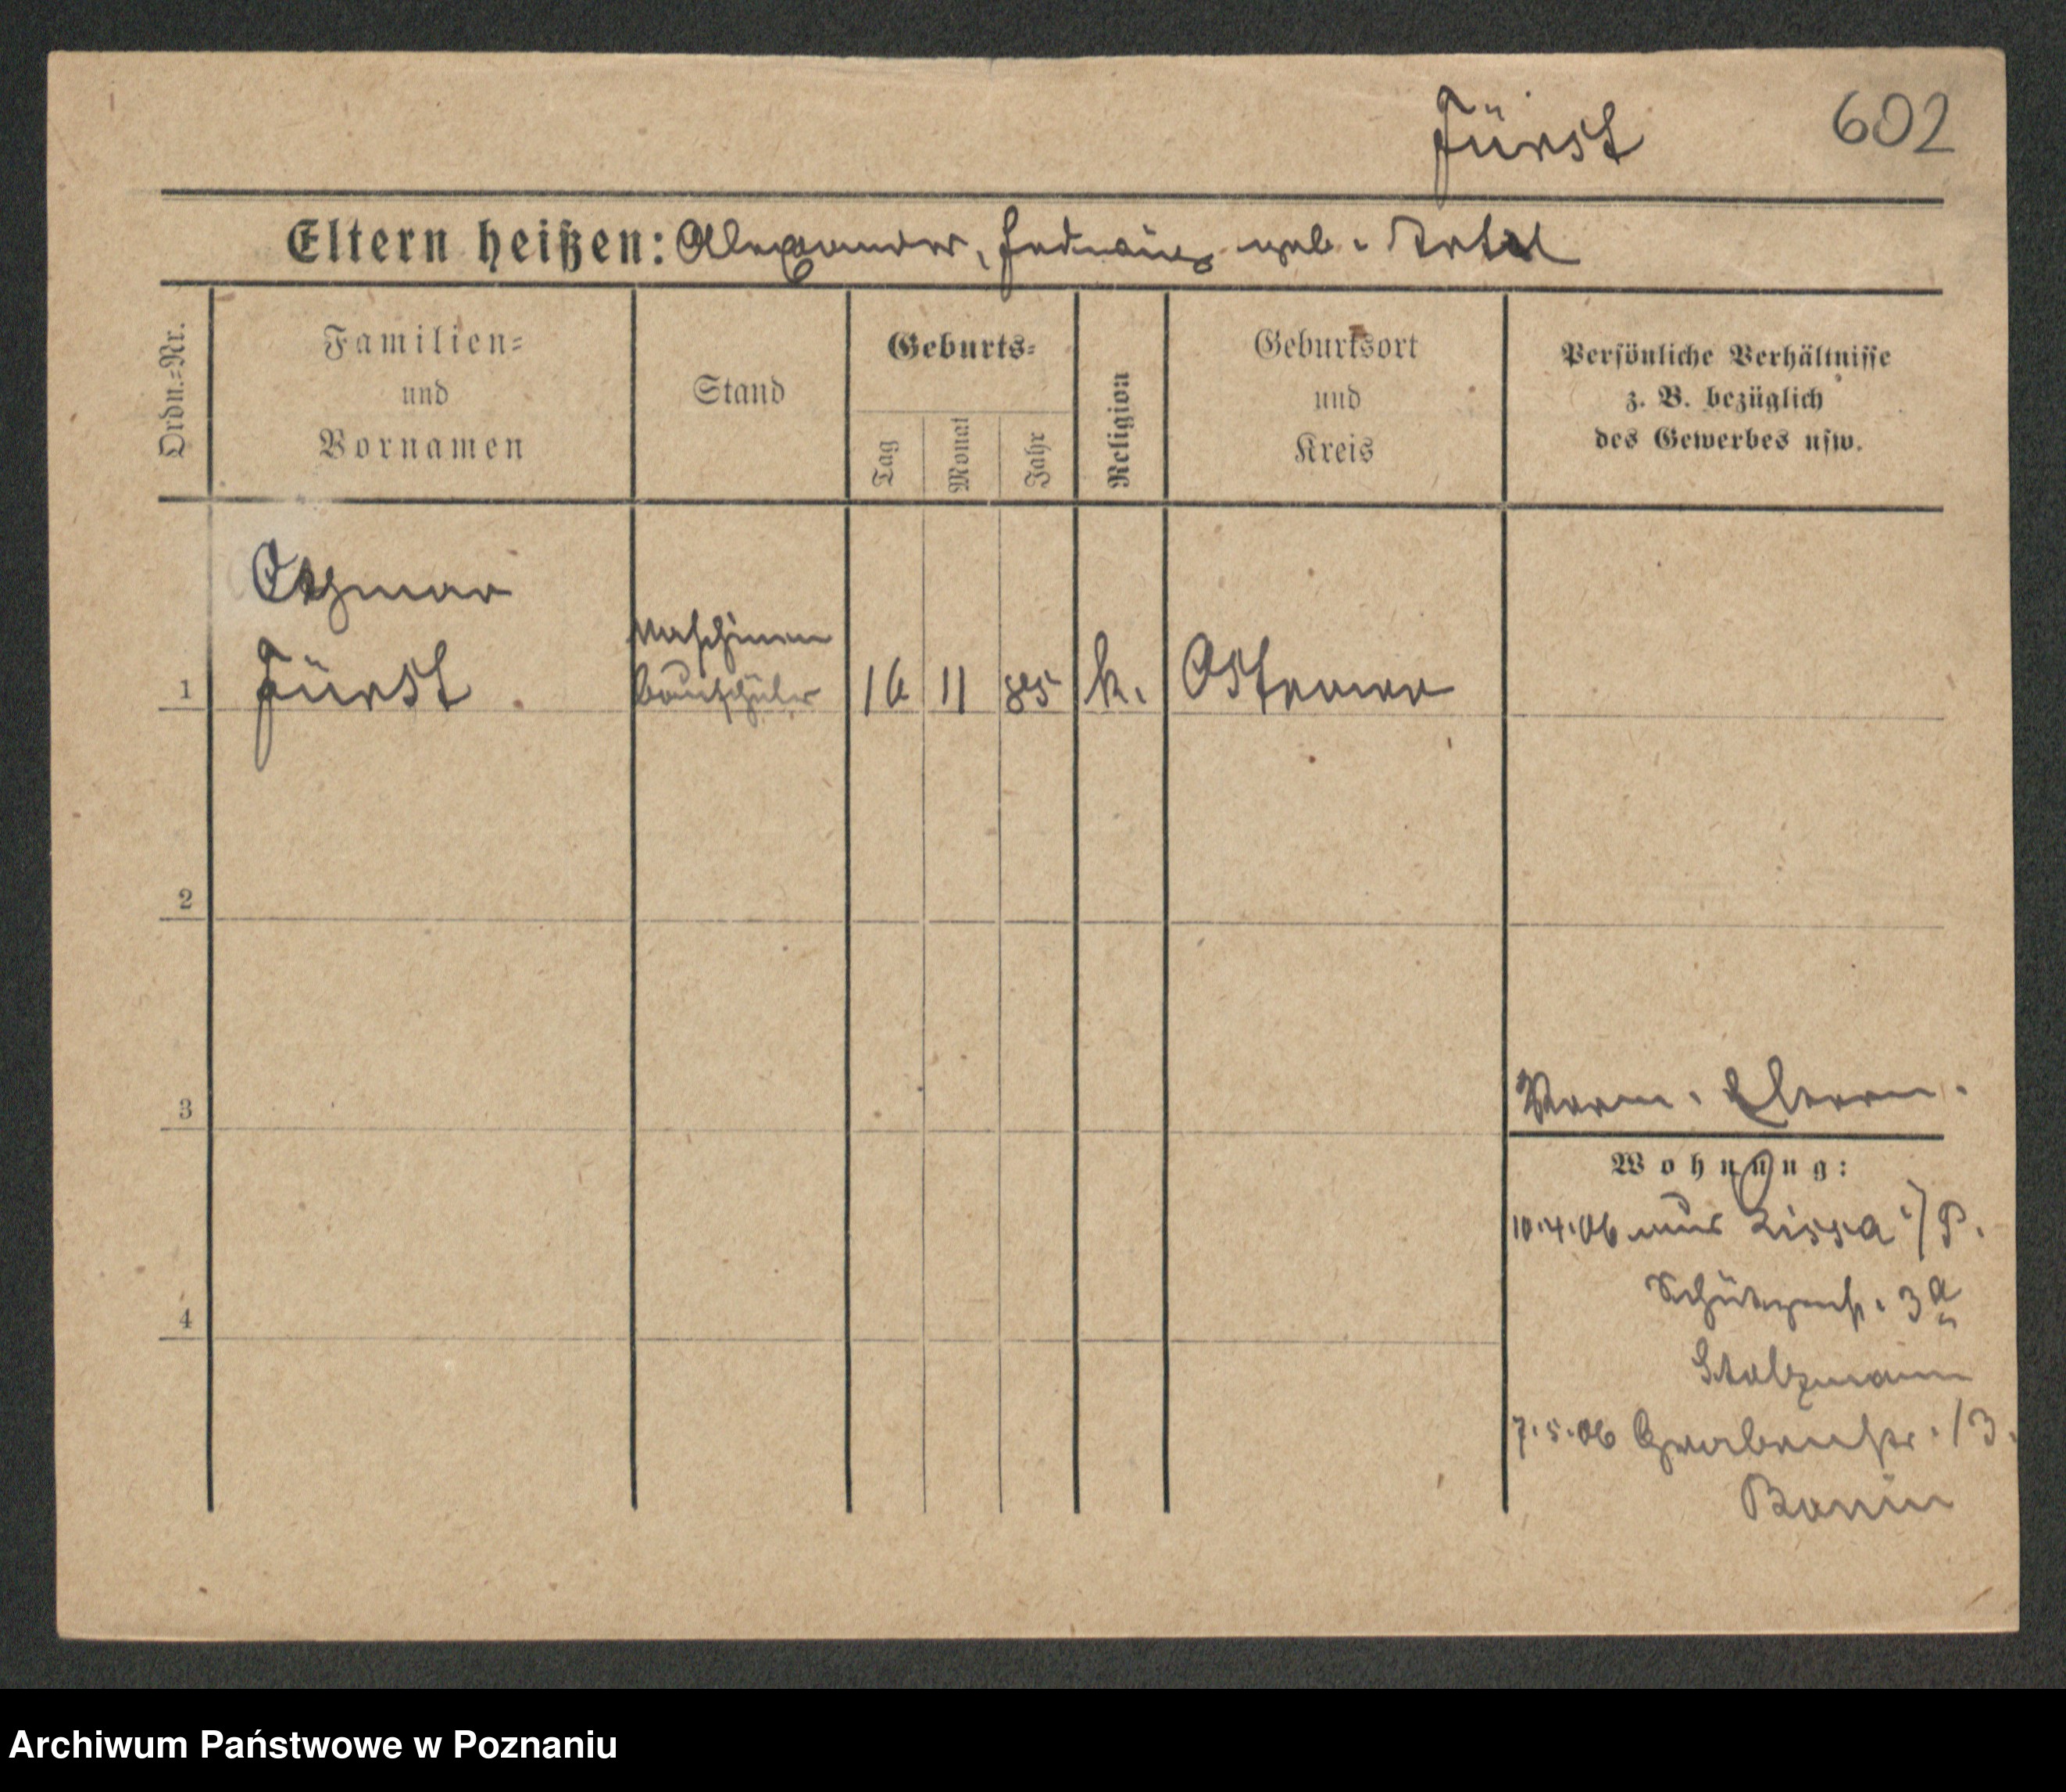 Fürst 602
Eltern heißen: Alexander, Hedwig geb. Ertel
Ordn.=Nr.
Familien=
und
Vornamen
Stand
Geburts=
Tag
Monat
Jahr
Religion
Geburtsort
und
Kreis
Persönliche Verhältnisse
z. B. bezüglich
des Gewerbes usw.
Maschinen
1 Fürst bauschüler 16 11 85 k. Ostrowo
2
3
4
Wohnung:
10.4.06 aus Lissa i/P.
Schützenstr. 3a
Stolzmann
7.5.06 Grabenstr. 13.
Bonin
Archiwum Państwowe w Poznaniu